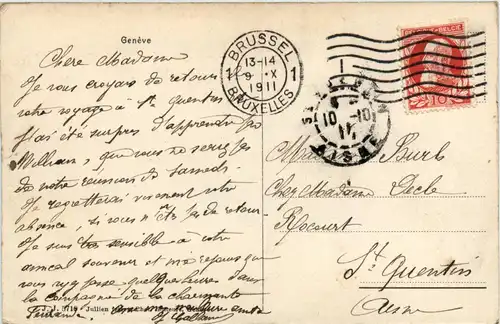 Genève
Chere Madame
Je vous croyais de retour
votre voyage à St Quentin
J'ai été surpris d'apprendre
William, que vous ne serez
de notre réunion de Samedi.
Je regretterai vivement votre
absence, si vous n' de retour
Je suis sensible à votre
amical souvenir et me réjouis que
vous passe quelques heures dans
la compagnie de la charmante
J.J. 3119 - Jullien
BRUSSEL
13-14
9 X
1911
1 1
BRUXELLES
BELGIE
10
10-10
11
AISNE
Burb
Chez Madame Decle
Rocourt
St Quentin
Aisne